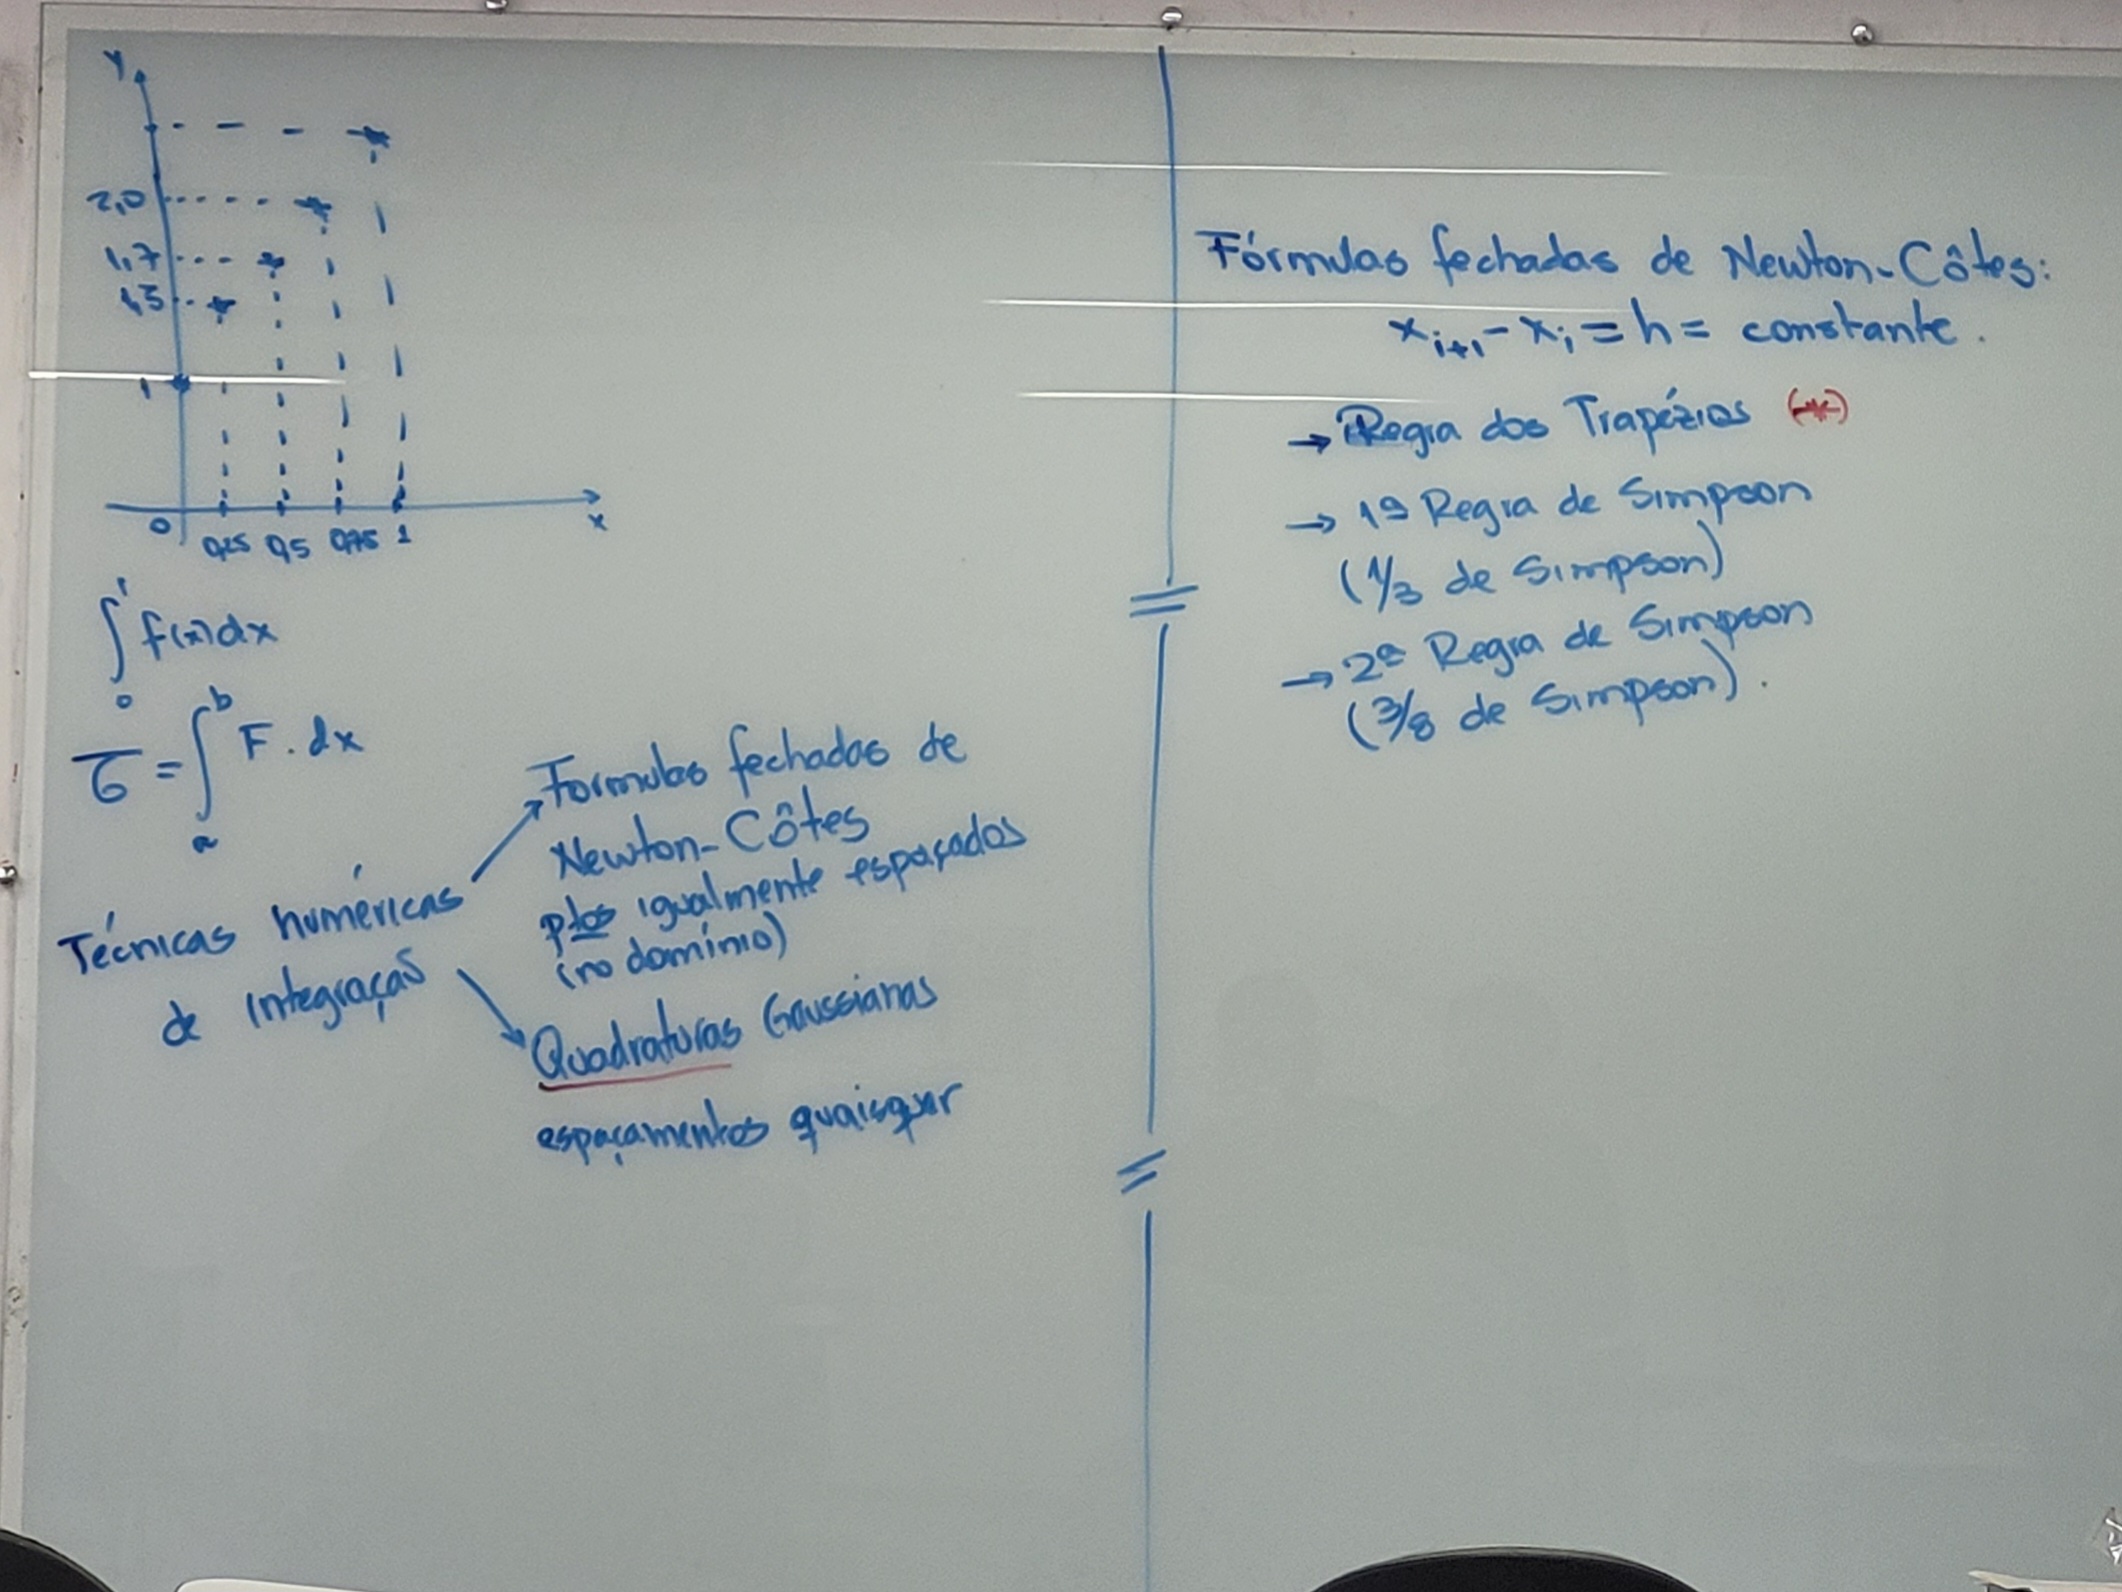 y
2,0
1,7
1,3
1
0 0,25 0,5 0,75 1 x
∫₀¹ f(x)dx
τ = ∫ₐᵇ F . dx
Técnicas numéricas
de integração
Formulas fechadas de
Newton-Côtes
ptos igualmente espaçados
(no domínio)
Quadraturas Gaussianas
espaçamentos quaisquer
Fórmulas fechadas de Newton-Côtes:
xᵢ₊₁ - xᵢ = h = constante.
→ Regra dos Trapézios (*)
→ 1ª Regra de Simpson
(1/3 de Simpson)
→ 2ª Regra de Simpson
(3/8 de Simpson).